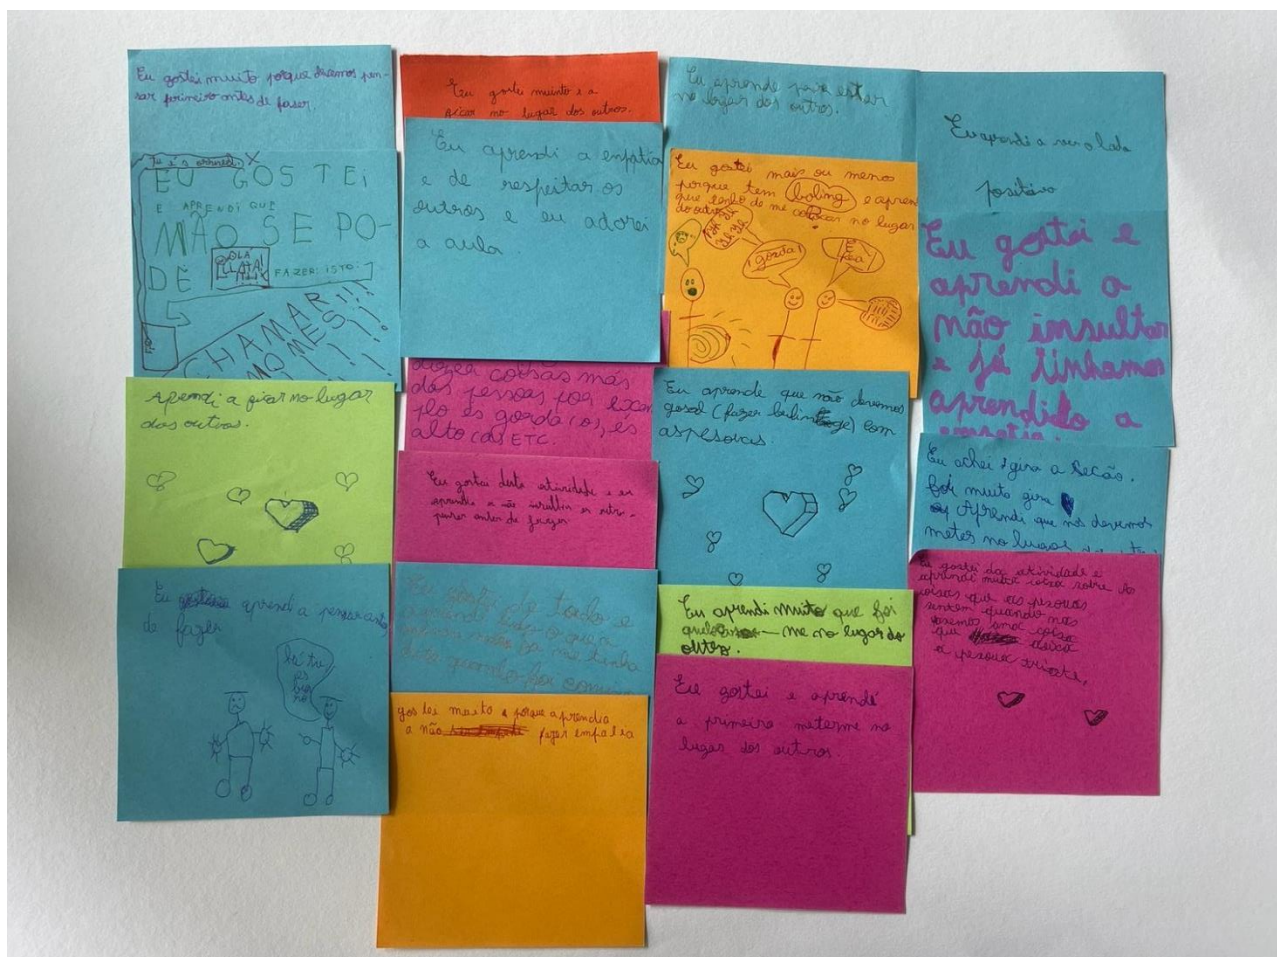 Eu gostei muito porque devemos pen-
sar primeiro antes de fazer.
EU GOSTEI
E APRENDI QUE
NÃO SE PO-
DE
OLA
FAZER ISTO:
CHAMAR
NOMES!!!
Aprendi a ficar no lugar
dos outros.
Eu aprend a pensar antes
de fazer
há tu
és
Eu gostei muinto e a
ficar no lugar dos outros.
Eu aprendi a enpatia
e de respeitar os
outros e eu adorei
a aula
dizer coisas más
das pessoas por exem
plo és gorda (o), és
alto (a) ETC.
Eu gostei desta atividade e eu
aprendi a não insultar os outro
pensar antes de fazer
Eu gostei de tudo e
aprendi tudo o que a
minha mãe ja me tinha
dito quando for
gos tei muito e porque aprendia
a não fazer empatia
Eu aprende para estar
no lugar dos outros.
Eu gostei mais ou meno
porque tem boling e apren
que tenho de me colocar no lugar
do outro
gorda!
É
feia
Eu aprende que não devemos
gosal (fazer bulin ge) com
as pesoas.
Eu aprendi muito que foi
-me no lugar do
outro.
Eu gostei e aprendé
a primeiro meterme no
lugar dos outros
Eu aprendi a ver o lado
positivo
Eu gostei e
aprendi a
não insultar
e já tinhamos
aprendido a
empatia.
Eu achei gira a
foi muito gira
Aprendi que nos devemos
meter no lugar
Eu gostei da atividade e
aprendi muita coiza sobre As
coisas que as pesouas
sentem quando nós
fazemos uma coisa
que deixa
a pesoua trizte.